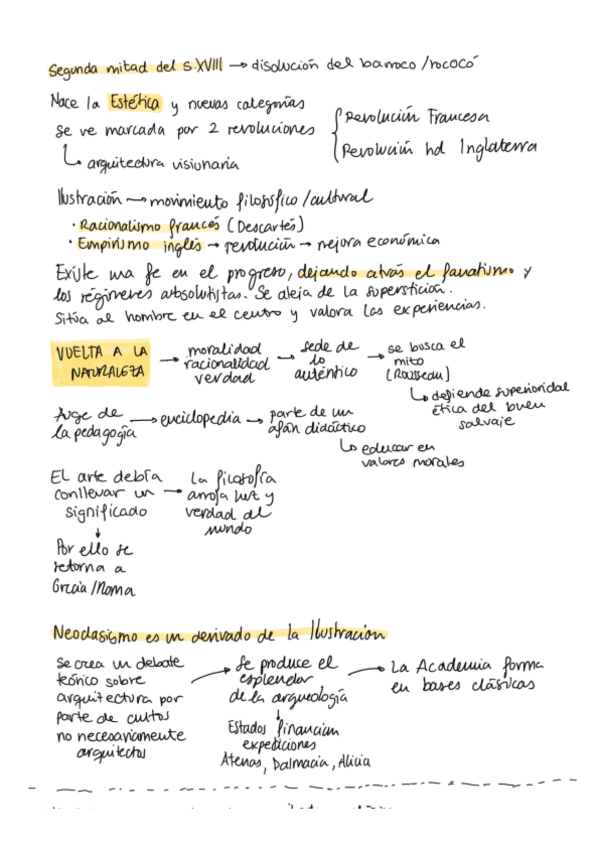 Segunda mitad del s.XVIII → disolución del barroco/rococó
Nace la Estética y nuevas categorías
se ve marcada por 2 revoluciones
Revolución Francesa
Revolución Ind Inglaterra
↳ arquitectura visionaria
Ilustración → movimiento filosófico/cultural
· Racionalismo francés (Descartes)
· Empirismo inglés → revolución → mejora económica
Existe una fe en el progreso, dejando atrás el fanatismo y
los régimenes absolutistas. Se aleja de la superstición.
Sitúa al hombre en el centro y valora las experiencias.
VUELTA A LA
NATURALEZA
→ moralidad
racionalidad
verdad
→ sede de
lo
auténtico
→ se busca el
mito
(Rousseau)
↳ defiende superioridad
ética del buen
salvaje
Auge de
la pedagogía
→ enciclopedia → parte de un
afán didáctico
↳ educar en
valores morales
El arte debía
conllevar un
significado
→ La filosofía
arroja luz y
verdad al
mundo
↓
Por ello se
retorna a
Grecia/Roma
Neoclasismo es un derivado de la Ilustración
se crea un debate
teórico sobre
arquitectura por
parte de cultos
no necesariamente
arquitectos
→ Se produce el
esplendor
de la arqueología
→ La Academia forma
en bases clásicas
↓
Estados financian
expediciones
Atenas, Dalmacia, Alicia